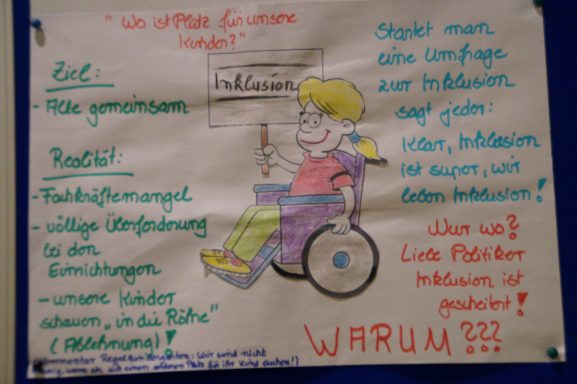 "Wo ist Platz für unsere
Kinder?"
Ziel:
- Alle gemeinsam
Realität:
- Fachkräftemangel
- völlige Überforderung
bei den
Einrichtungen
- unsere Kinder
schauen „in die Röhre"
(Ablehnung)!
Inklusion
Startet man
eine Umfrage
zur Inklusion
sagt jeder:
Klar, Inklusion
ist super, wir
leben Inklusion!
Nur wo?
Liebe Politiker
Inklusion ist
gescheitert!
WARUM???
(Kommentar Regelkindergarten: Wir sind nicht
einen anderen Platz für ihr Kind suchen!)